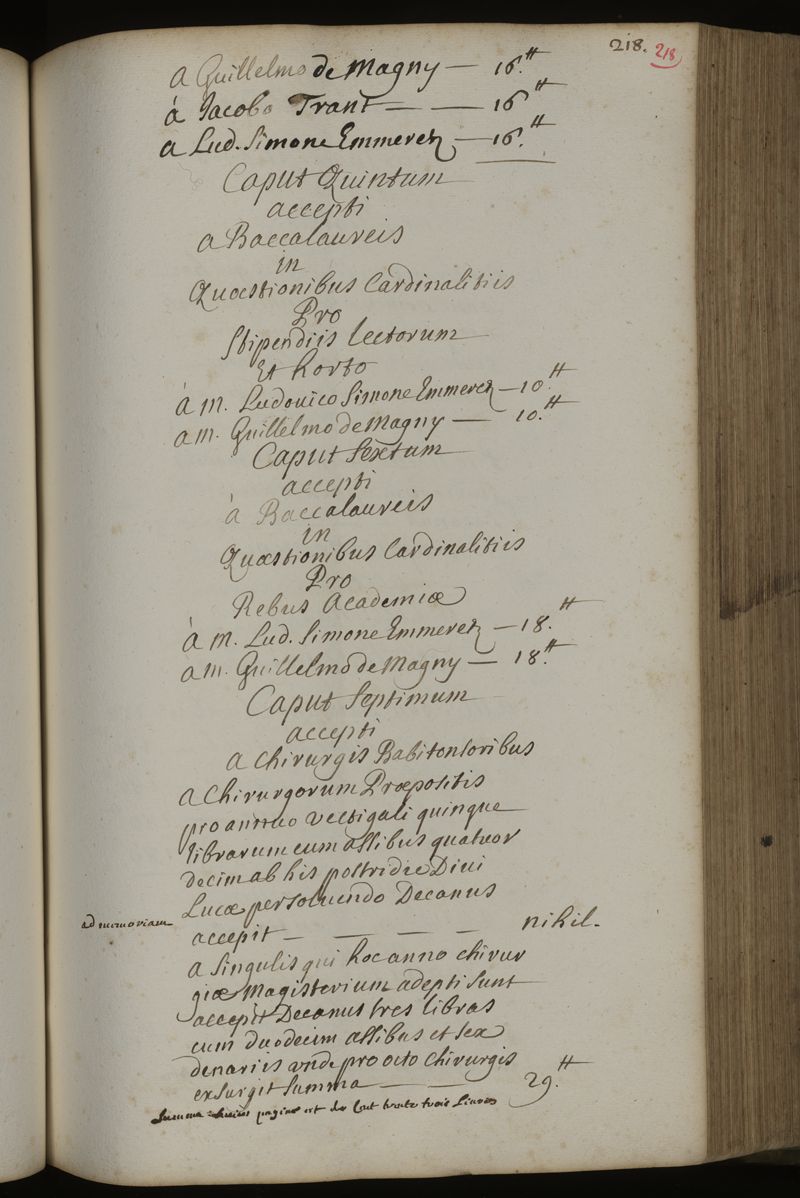 218. 218
a Guillelmo de Magny — 16.ᵗᵗ
à Jacobo Trant — — 16ᵗᵗ
a Lud. Simone Emmerez — 16.ᵗᵗ
Caput Quintum
accepti
a Baccalaureis
in
Quæstionibus Cardinalitiis
Pro
Stipendiis lectorum
Et horto
à m. Ludouico Simone Emmerez — 10.ᵗᵗ
a m. Guillelmo de Magny — 10.ᵗᵗ
Caput Sextum
accepti
à Baccalaureis
in
Quæstionibus Cardinalitiis
Pro
Rebus Academiæ
à m. Lud. Simone Emmerez — 18.ᵗᵗ
a m. Guillelmo de Magny — 18.ᵗᵗ
Caput Septimum
accepti
a Chirurgis Barbitonsoribus
a Chirurgorum Præpositis
pro annuo vectigali quinque
librarum cum assibus quatuor
decim ab his postridie Diui
Lucæ persoluendo Decanus
ad memoriam
accepit — — — — nihil.
a Singulis qui hoc anno chirur
giæ Magisterium adepti sunt
accepit Decanus tres libras
cum duodecim assibus et sex
denariis vnde pro octo chirurgis
exsurgit summa — — 29.ᵗᵗ
Summa huius paginæ est de Cent trente trois Liures